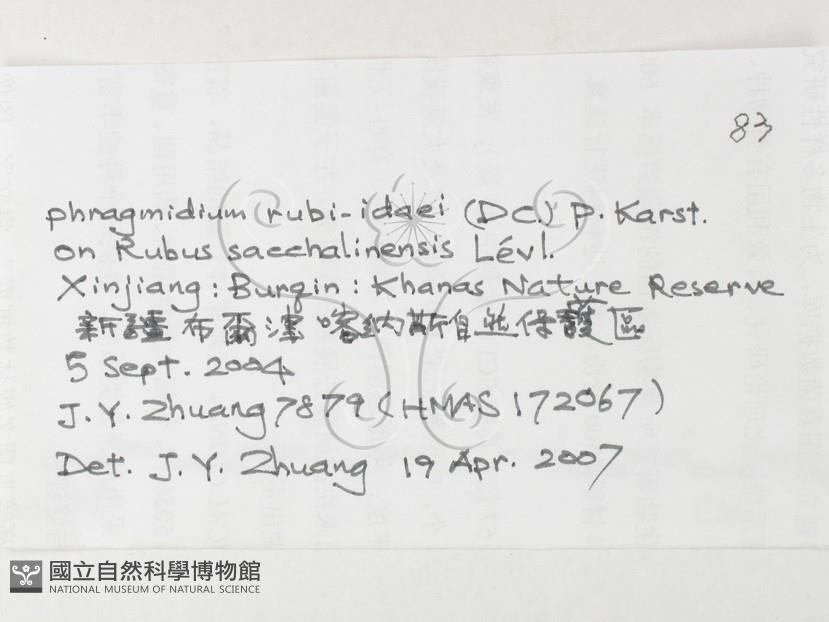 83
phragmidium rubi-idaei (DC.) P. Karst.
on Rubus sacchalinensis Lévl.
Xinjiang: Burqin: Khanas Nature Reserve
新疆布爾津喀納斯自然保護區
5 Sept. 2004
J. Y. Zhuang 7879 (HMAS 172067)
Det. J. Y. Zhuang 19 Apr. 2007
國立自然科學博物館
NATIONAL MUSEUM OF NATURAL SCIENCE